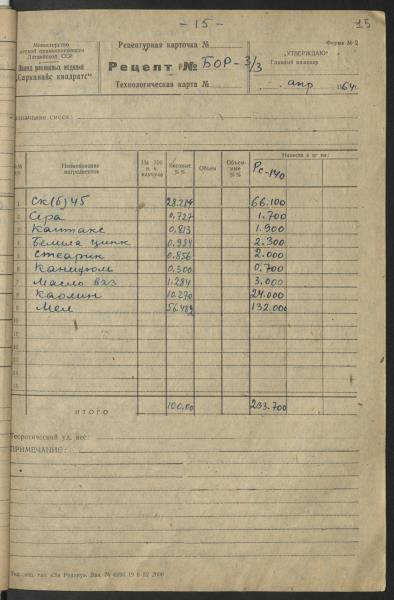 - 15 -
15
Министерство
легкой промышленности
Латвийской ССР
Завод резиновых изделий
„Сарканайс квадратс"
Рецептурная карточка №
Рецепт № БОР-3/3
Технологическая карта №
Форма № 2
„УТВЕРЖДАЮ"
Главный инженер
апр 1964 г.
Назначение смеси:
Наименование ингредиентов
На 100 в. ч. каучука
Весовые %%
Объем
Объемные %%
Навеска в кг на:
Рс-140
1 СК(б) 45 28.284 66.100
2 Сера 0.727 1.700
3 Каптакс 0.813 1.900
4 Белила цинк 0.984 2.300
5 Стеарин 0.856 2.000
6 Канифоль 0.300 0.700
7 Масло ваз 1.284 3.000
8 Каолин 10.270 24.000
9 Мел 56.482 132.000
10
11
12
13
14
15
ИТОГО 100.00 233.700
Теоретический уд. вес:
ПРИМЕЧАНИЕ: